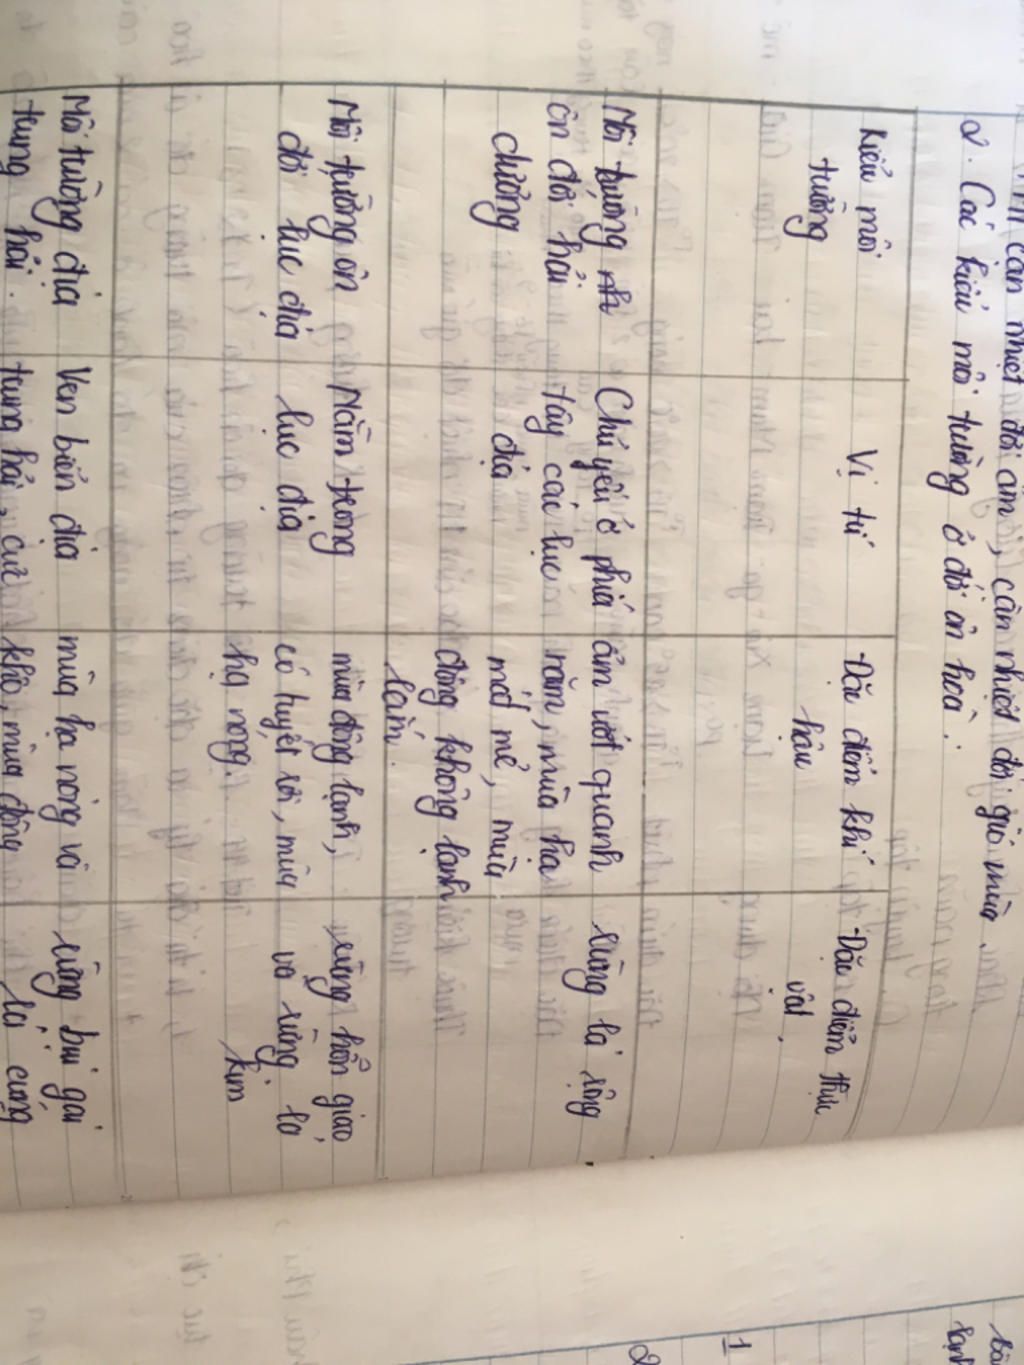 cận nhiệt đới ẩm, cận nhiệt đới gió mùa.
2. Các kiểu môi trường ở đới ôn hoà:
Kiểu môi trường
Vị trí
Đặc điểm khí hậu
Đặc điểm thực vật
Môi trường
ôn đới hải
dương
Chủ yếu ở phía
tây các lục
địa
ẩm ướt quanh
năm, mùa hạ
mát mẻ, mùa
đông không lạnh
lắm.
rừng lá rộng
Môi trường ôn
đới lục địa
Nằm trong
lục địa
mùa đông lạnh,
có tuyết rơi, mùa
hạ nóng.
rừng hỗn giao
và rừng lá
kim
Môi trường địa
trung hải.
Ven biển địa
trung hải, cực
mùa hạ nóng và
khô, mùa đông
rừng bụi gai
lá cứng
1
2